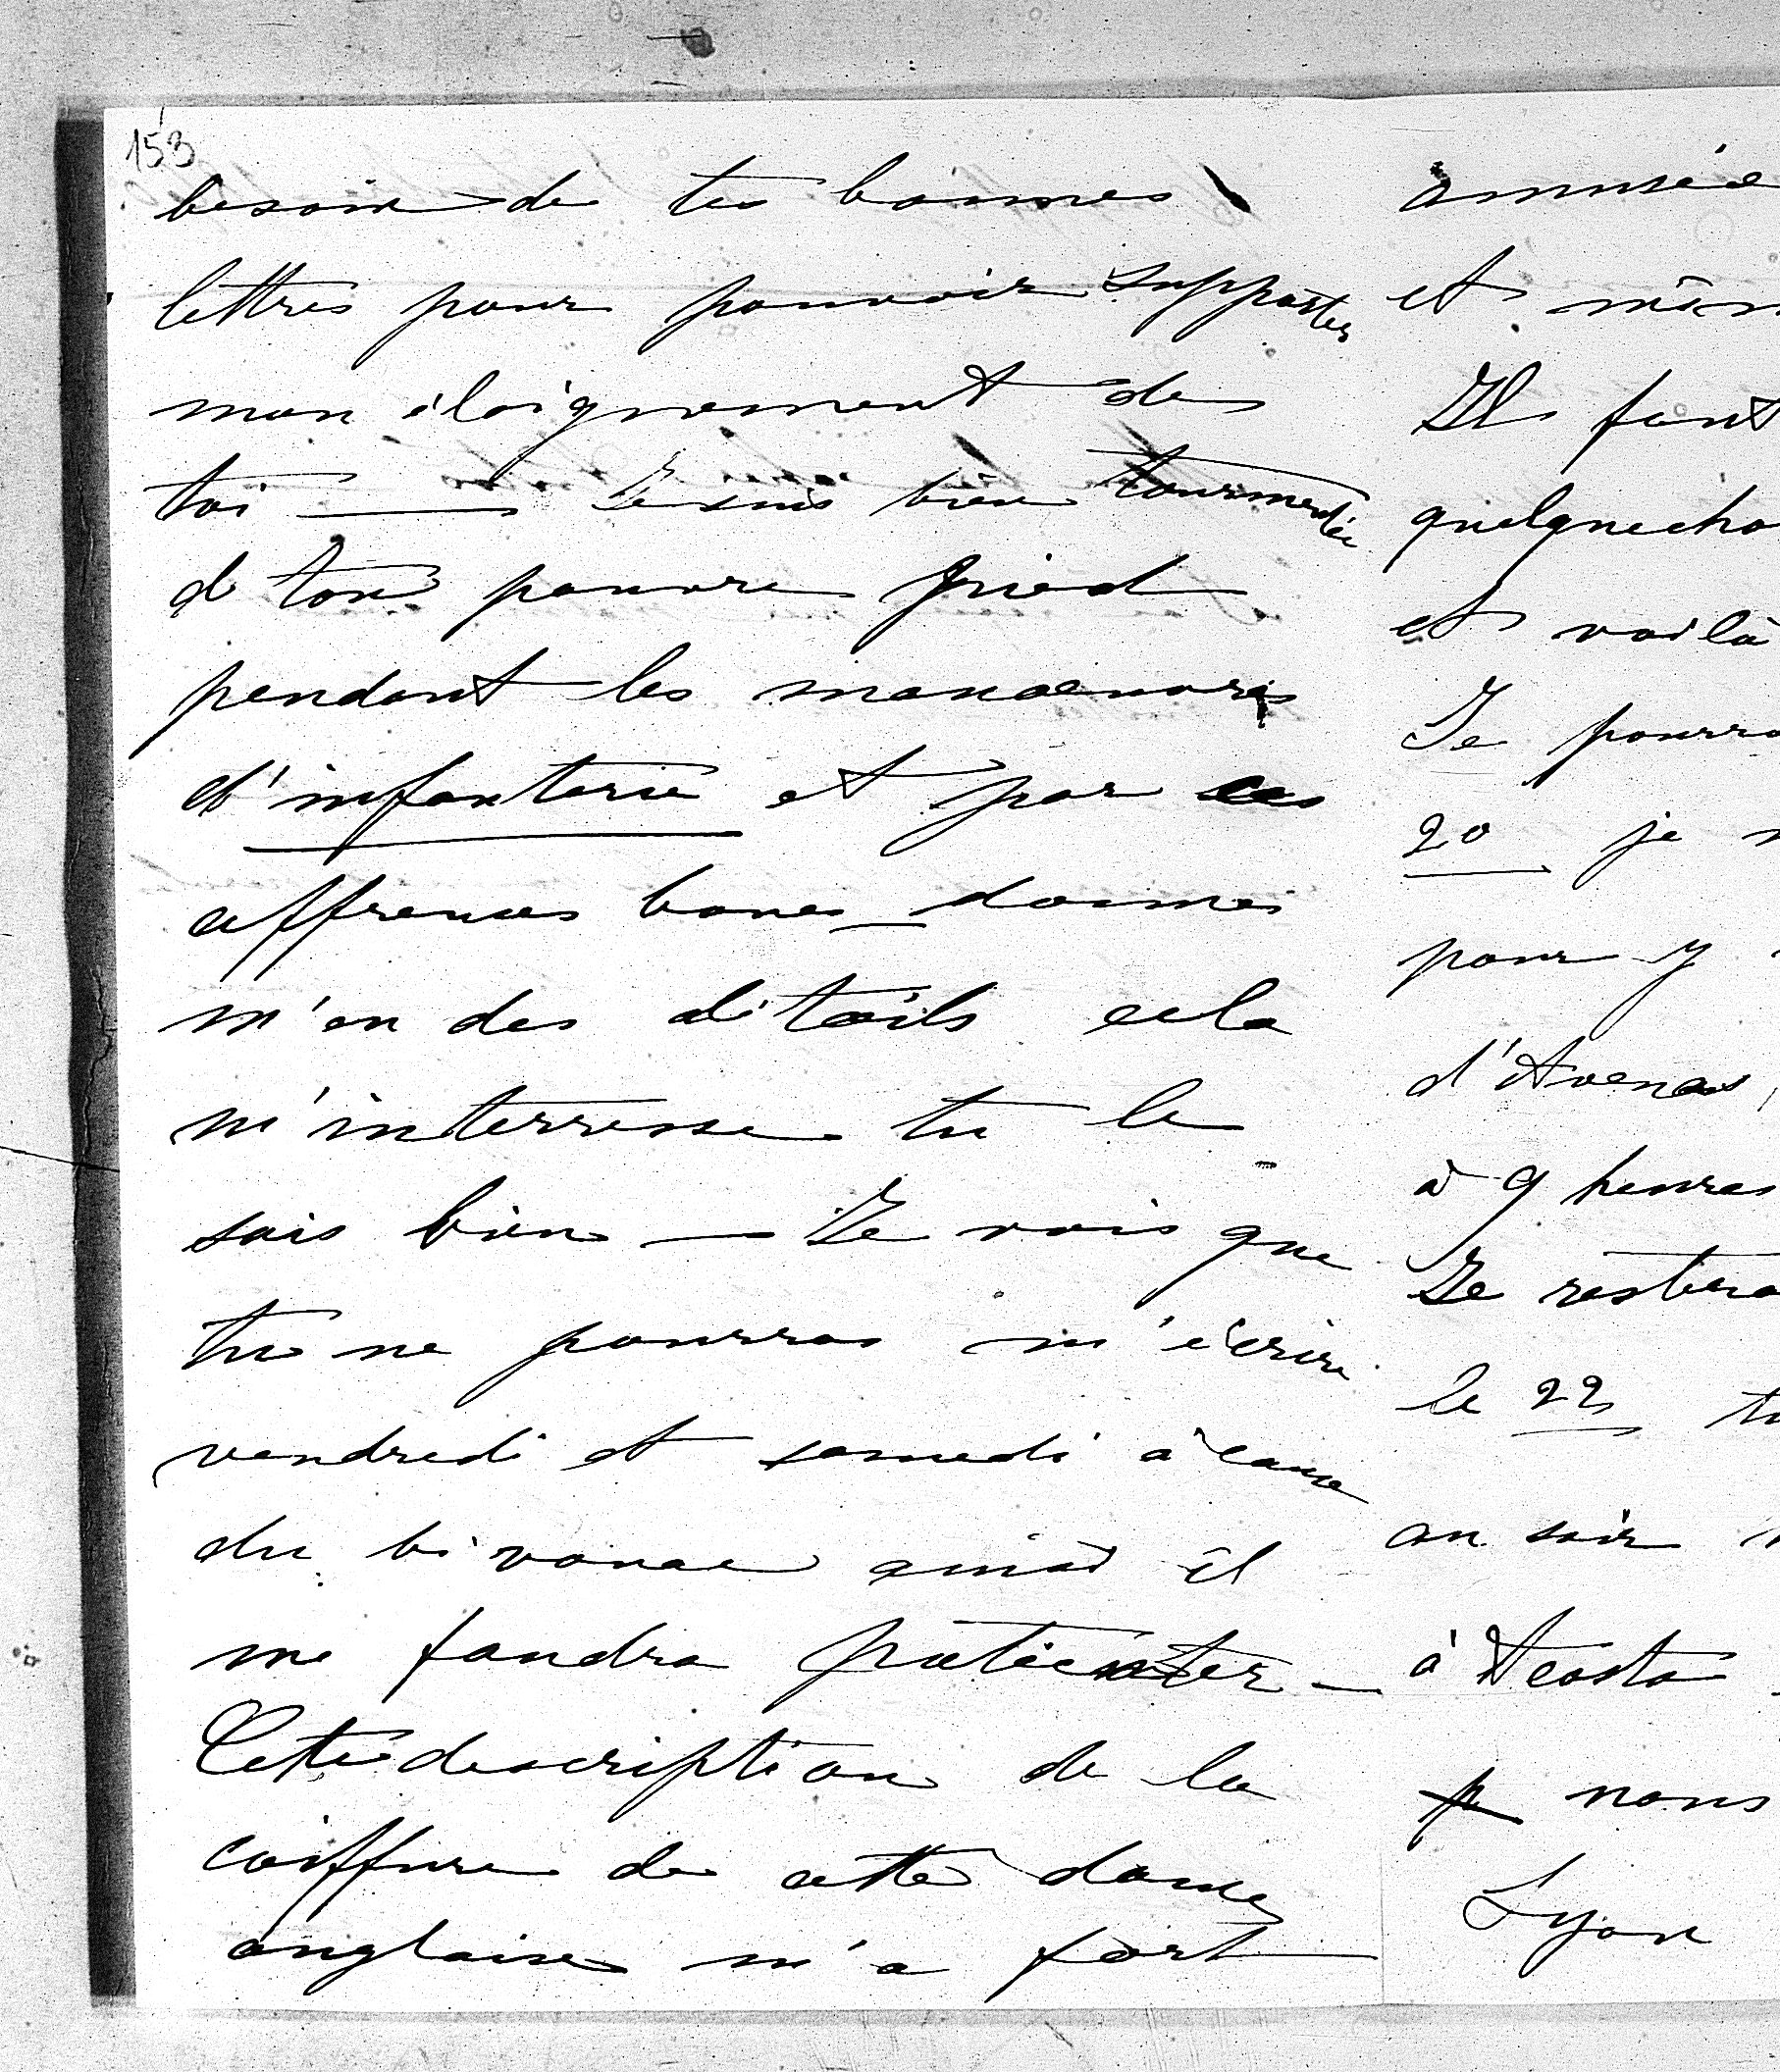 153
besoin de tes bonnes
lettres pour pouvoir supporter
mon éloignement de
toi — Je suis bien tourmentée
d ton pauvre pied
pendant les manoeuvres
d'infanterie et par ces
affreuses boues donnes
m'en des détails cela
m'interresse tu le
sais bien — Je vois que
tu ne pourras m'écrire
vendredi et samedi à cause
du bivouac ainsi il
me faudra patienter —
Cette description de la
coiffure de cette dame
anglaise m'a fort
amusée
et
Il faut
quelquecho
et voilà
Je pourra
20 je
pour y
d'Avenas,
à 9 heures
Je restera
le 22 tu
au soir
à Aosta
nous
Lyon